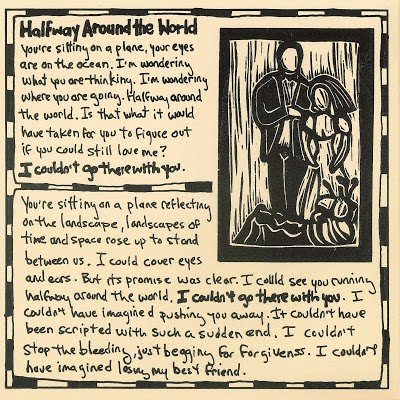 Halfway Around the World
You're sitting on a plane, your eyes
are on the ocean. I'm wondering
what you are thinking. I'm wondering
where you are going. Halfway around
the world. Is that what it would
have taken for you to figure out
if you could still love me?
I couldn't go there with you.
You're sitting on a plane reflecting
on the landscape, landscapes of
time and space rose up to stand
between us. I could cover eyes
and ears. But its promise was clear. I could see you running
halfway around the world. I couldn't go there with you. I
couldn't have imagined pushing you away. It couldn't have
been scripted with such a sudden end. I couldn't
stop the bleeding, just begging for forgivenss. I couldn't
have imagined losing my best friend.